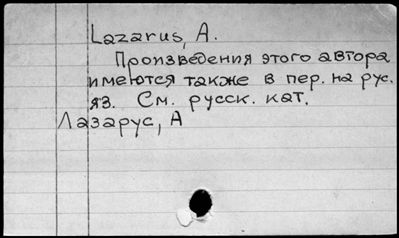 Lazarus, A.
Произведения этого автора
имеются также в пер. на рус.
яз. См. русск. кат.
Лазарус, А